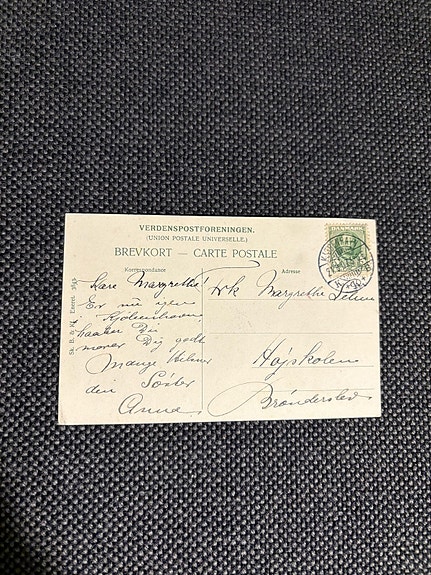 VERDENSPOSTFORENINGEN.
(UNION POSTALE UNIVERSELLE.)
BREVKORT — CARTE POSTALE
Korrespondance
Adresse
DANMARK
Kære Margrethe!
Er nu igen
Kjøbenhavn
haaber Du
morer Dig godt
Mange Hilsner
din Søster
Anna
Frk Margrethe
Højskolen
Brønderslev
Sk. B. & Kf. Eneret.